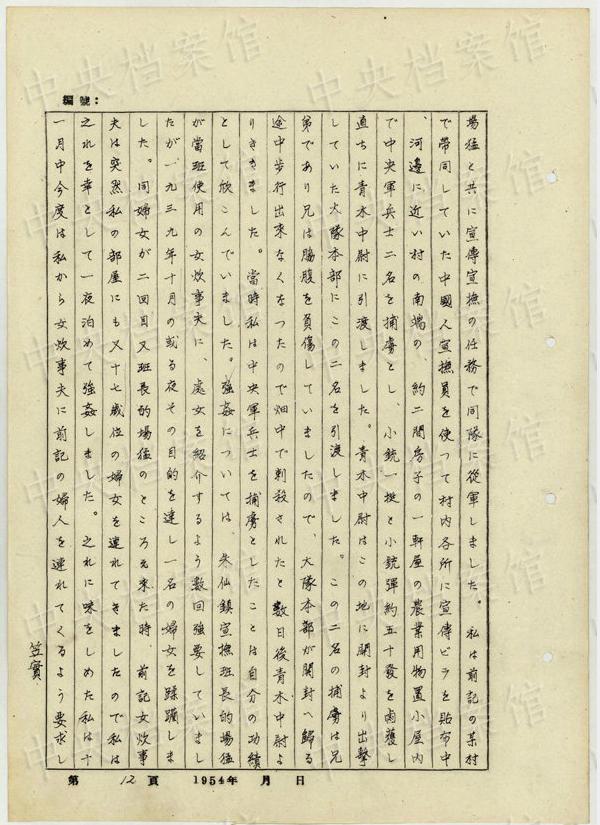 編號：
場猛と共に宣傳宣撫の任務で同隊に從軍しました。私は前記の某村
で帶同していた中國人宣撫員を使つて村内各所に宣傳ビラを貼布中
、河邊に近い村の南端の、約二間房子の一軒屋の農業用物置小屋内
で中央軍兵士二名を捕虜とし、小銃一挺と小銃彈約五十發を鹵獲し
直ちに青木中尉に引渡しました。青木中尉はこの地に開封より出擊
していた大隊本部にこの二名を引渡しました。この二名の捕虜は兄
弟であり兄は脇腹を負傷していましたので、大隊本部が開封へ歸る
途中步行出來なくなつたので畑中で刺殺されたと数日後青木中尉よ
りききました。當時私は中央軍兵士を捕虜としたことは自分の功績
として欣こんでいました。強姦については、朱仙鎮宣撫班長的場猛
が當班使用の女炊事夫に、處女を紹介するよう数回強要していまし
たが、一九三九年十月の或る夜その目的を達し一名の婦女を蹂躙しま
した。同婦女が二回目又班長的場猛のところえ來た時、前記女炊事
夫は突然私の部屋にも又十七歳位の婦女を連れてきましたので私は
之れを幸として一夜泊めて強姦しました。之れに味をしめた私は十
一月中今度は私から女炊事夫に前記の婦人を連れてくるよう要求し
笠實
第 12 頁 1954年 月 日
中央档案馆